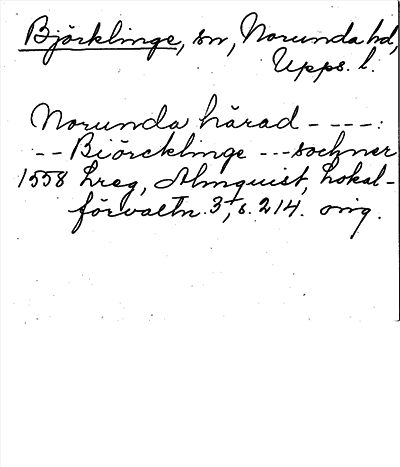 Björklinge, sn, Norunda hd,
Upps. l.
Norunda härad - - - - :
- - Biörcklinge - - - sochner
1558 Lreg, Almquist, Lokal-
förvaltn. 3, s. 214. orig.